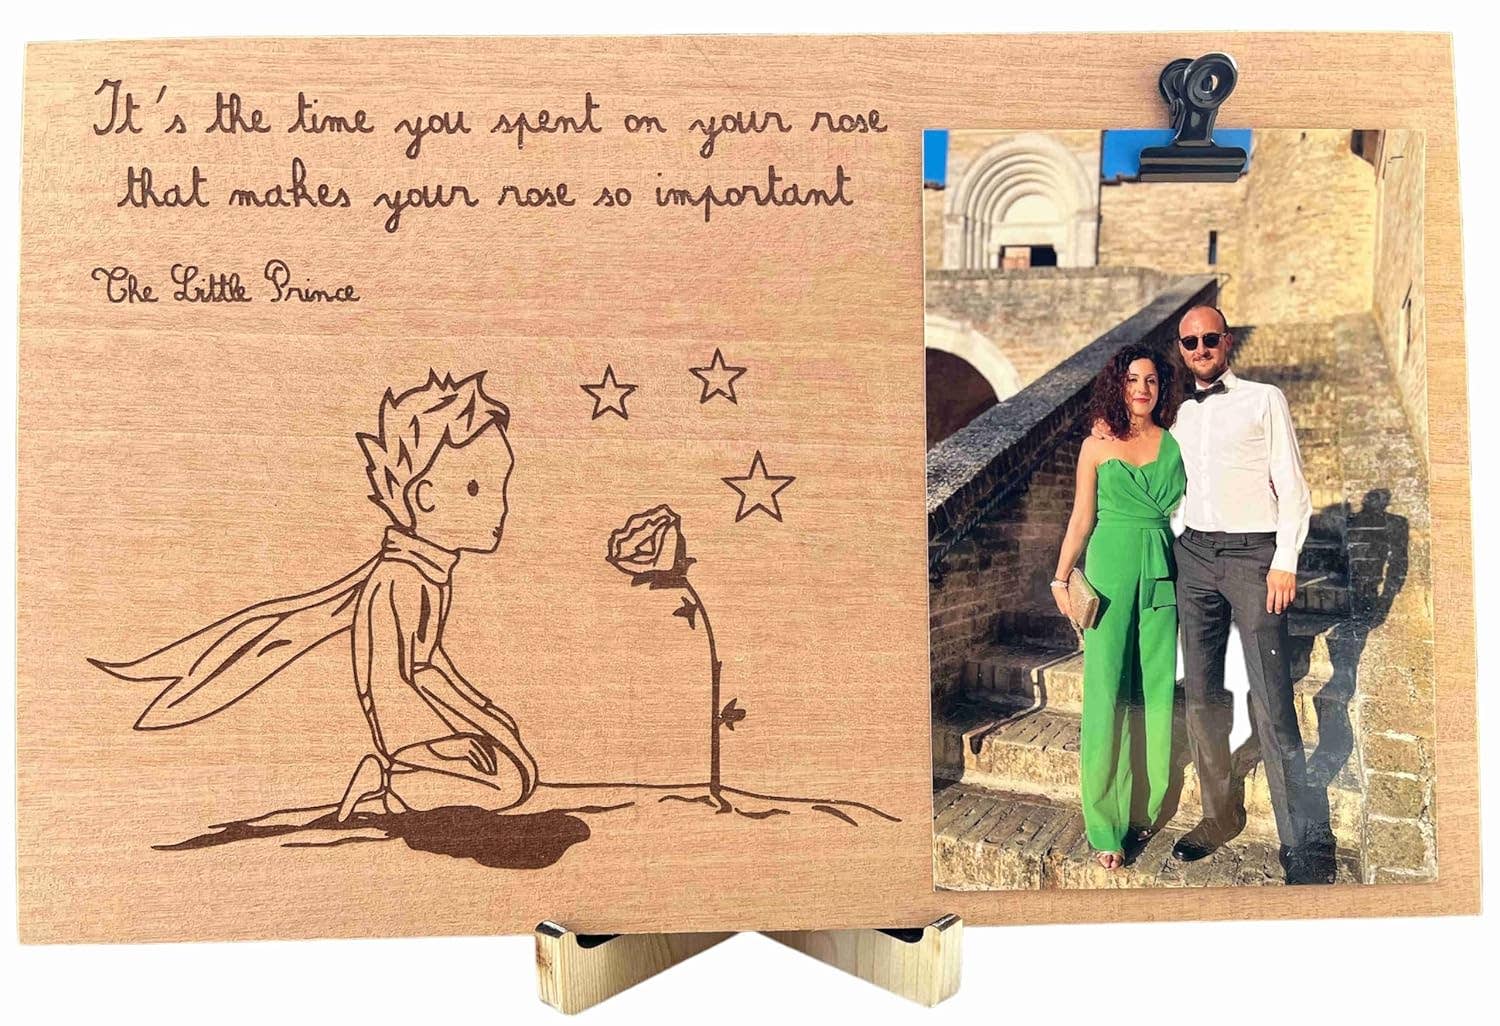 It's the time you spent on your rose
that makes your rose so important
The Little Prince